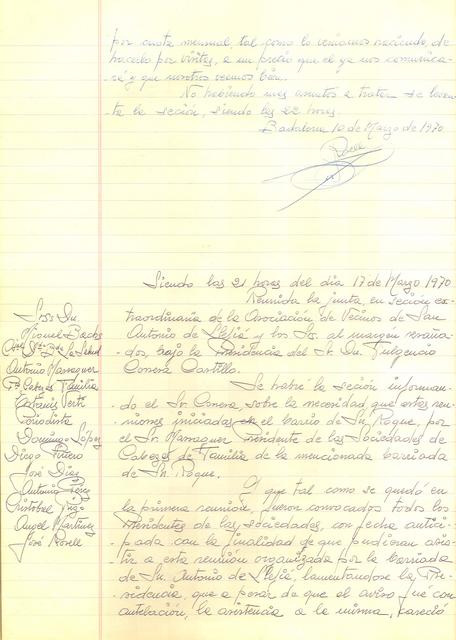 por cuota mensual, tal como lo veniamos haciendo, de
hacerlo por visitas, a un precio que el ya nos comunica-
rá y que nosotros veemos bien.
No habiendo mas asuntos a tratar se levan-
ta la seción, siendo las 22 horas.
Badalona 10 de Marzo de 1970
Siendo las 21 horas del dia 17 de Marzo 1970
Reunida la junta, en seción ex-
traordinaria de la Asociación de Vecinos de San
Antonio de Llefiá y los Srs. al margen reseña-
dos, bajo la Presidencia del Sr. Dn. Fulgencio
Conesa Castillo.
Se habre la seción informan-
do el Sr. Conesa sobre la necesidad que estas reu-
niones iniciadas en el barrio de Sn. Roque, por
el Sr. Marraguer Presidente de las Sociedades de
Cabezas de Familia de la mencionada barriada
de Sn. Roque.
Y que tal como se quedó en
la primera reunión, fueron convocados todos los
Presidentes de las sociedades, con fecha antici-
pada con la finalidad de que pudieran asis-
tir a esta reunión organizada por la barriada
de Sn. Antonio de Llefiá, lamentandose la Pre-
sidencia, que a pesar de que el aviso fué con
antelación, la asistencia a la misma, careció
Sres. Dn.
Miguel Bades
la Salud
Antonio Marraguer
Cabezas Familia
Periodista
Domingo López
Diego Piñero
José Diaz
Antonio
Cristobal
Angel Martinez
José Rosell